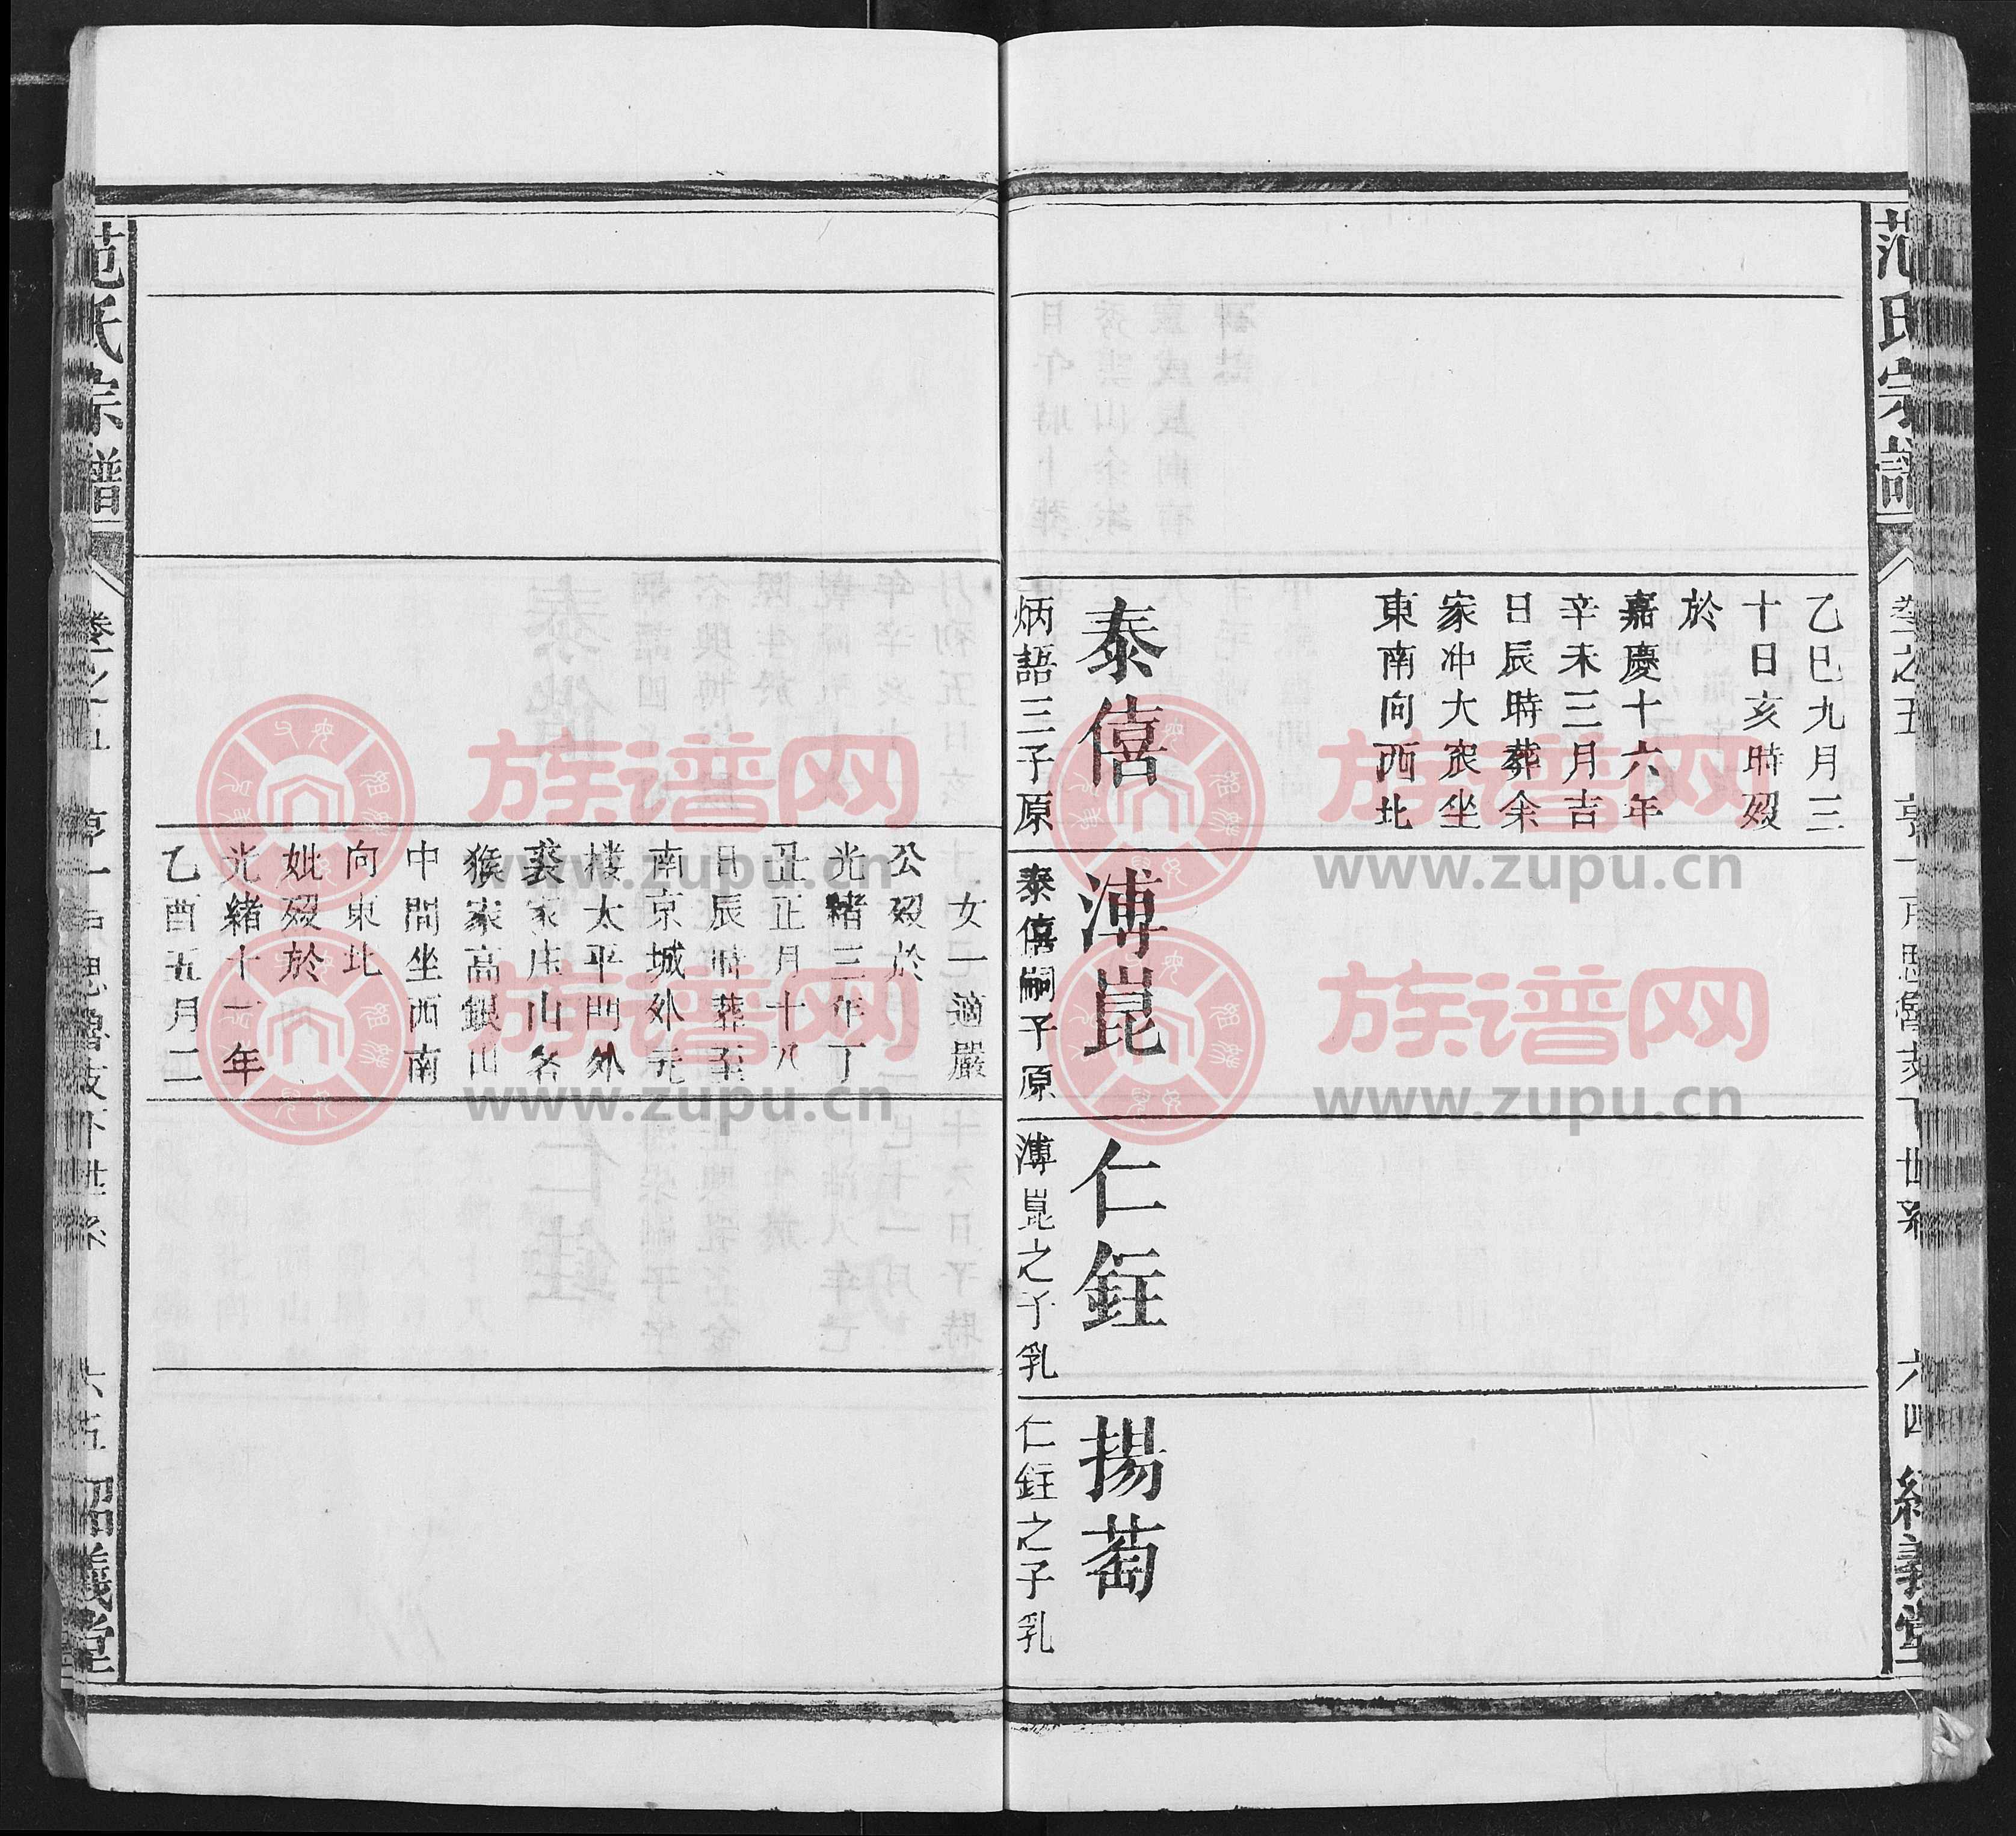 范氏宗譜
卷之五
六四
經義堂
乙巳九月三
十日亥時歿
於
嘉慶十六年
辛未三月吉
日辰時葬余
家冲大衆坐
東南向西北
泰僖
炳語三子原
溥崑
泰僖嗣子原
仁鉒
溥崑之子乳
揚萄
仁鉒之子乳
女一適嚴
公歿於
光緒三年丁
丑正月十八
日辰時葬至
南京城外元
樓太平門外
裴家庄山名
猴家高銀山
中間坐西南
向東北
妣歿於
光緒十一年
乙酉五月二
范氏宗譜
卷之五
六五
族谱网
www.zupu.cn
族谱网
www.zupu.cn
族谱网
www.zupu.cn
族谱网
www.zupu.cn